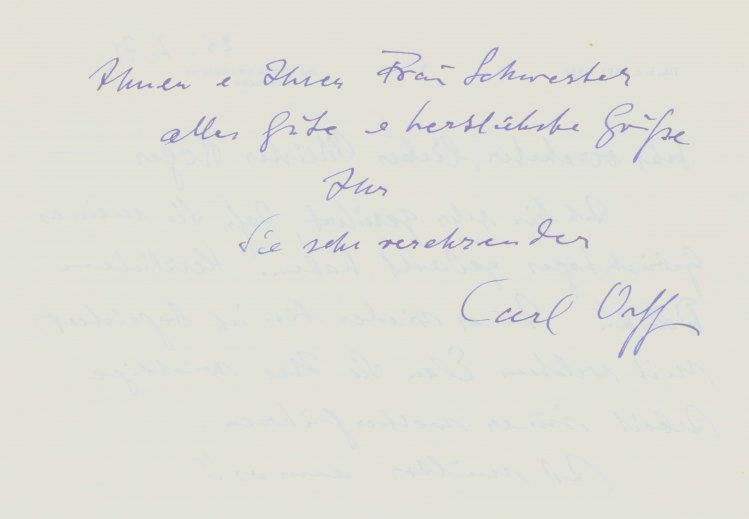 Ihnen e Ihrer Frau Schwester
alles Gute e herzlichste Grüße
Ihr
Sie sehr verehrender
Carl Orff